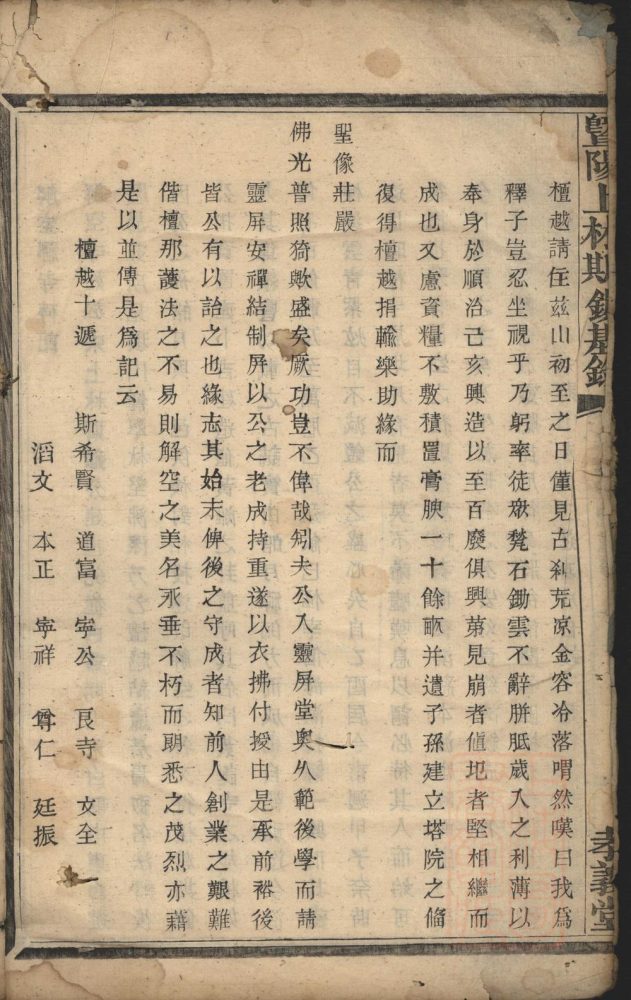 暨陽上林斯
孝義堂
檀越請住茲山初至之日僅見古刹荒凉金容冷落喟然嘆曰我爲
釋子豈忍坐視乎乃躬率徒墩甃石鋤雲不辭胼胝歲入之利薄以
奉身於順治己亥興造以至百廢俱興第見崩者值圮者堅相繼而
成也又慮資糧不敷積置膏腴一十餘畝并遺子孫建立塔院之偹
復得檀越捐輸樂助緣而
聖像莊嚴
佛光普照猗歟盛矣厥功豈不偉哉矧夫公入靈屏堂奥久範後學而請
靈屏安禪結制屏以公之老成持重遂以衣拂付授由是承前裕後
皆公有以詒之也緣志其始末俾後之守成者知前人創業之艱難
偕檀那護法之不易則解空之美名永垂不朽而朗悉之茂烈亦藉
是以並傳是爲記云
檀越十遞 斯希賢 道富 寧公 良寺 文全
滔文 本正 寧祥 尊仁 廷振